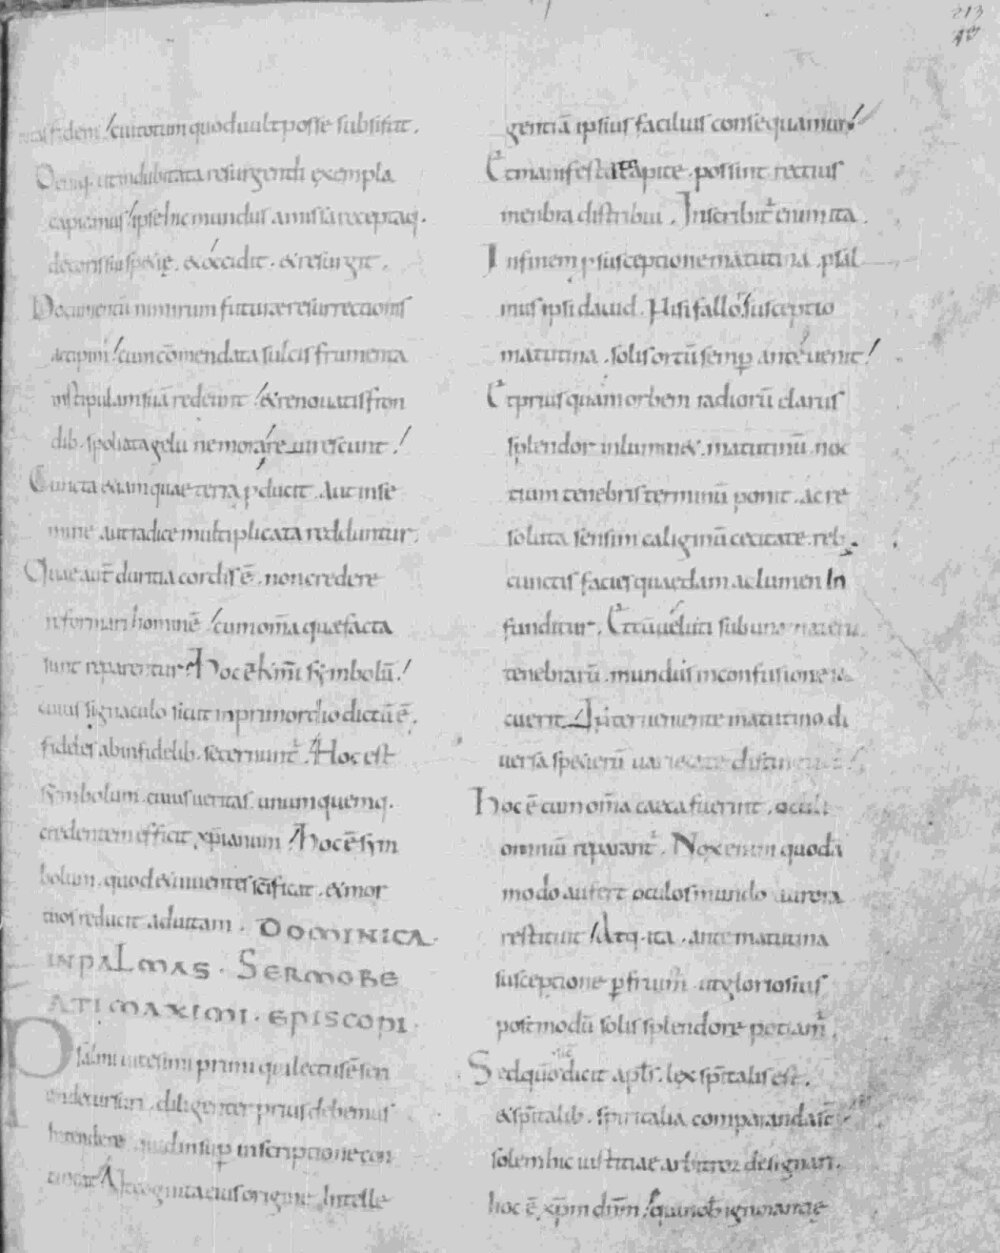 213
fidem / cui totum quod uult posse subsistit.
Deniq. ut indubitata resurgendi exempla
capiamus / ipse hic mundus amissa receptaq.
decoris sui specię. & occidit. & resurgit.
Documentū nimirum futurae resurrectionis
accipim̄ / cum cōmendata sulcis frumenta
instipulam suā redeunt / & renouatis fron
dib. spoliata gelu nemora reuirescunt!
Cuncta etiam quae terra ꝓducit. Aut inse
mine. aut radice multiplicata redduntur.
Quae aut̄ duritia cordis ē. non credere
reformari hominē / cum om̄a quae facta
sunt reparentur. Hoc ē kmī sȳmbolū!
cuius signaculo sicut in primordio dictū ē.
fideles ab infidelib. secernunt̄. Hoc est
sȳmbolum. cuius ueritas. unumquemq.
credentem efficit xp̄ianum. Hoc ē sym
bolum. quod & uiuentes sc̄ificat. & mor
tuos reducit ad uitam. DOMINICA.
INPALMAS. SERMO BE
ATI MAXIMI. EPISCOPI.
Psalmi uicesimi primi qui lectus ē sen
diligenter prius debemus
insup̄ inscriptione con
Ut cognita eius origine. Intelle
gentiā ipsius facilius consequamur!
Et manifestato capite. possint rectius
menbra distribui. Inscribit̄ enim ita.
In finem ꝓ susceptione matutina. psal
mus ipsi dauid. Nisi fallor susceptio
matutina. solis ortū semꝑ anteuenit!
Et prius quam orbem radiorū clarus
splendor inluminet. matutinū. noc
tium tenebris terminū ponit. ac re
soluta sensim caliginū cecitate. reb.
cunctis facies quaedam ac lumen In
funditur. Et cū ueluti sub uno
tenebrarū. mundus in confusione
cuerit / Adueniente matutino di
uersa specierū uarietate
Hoc ē cum om̄a caeca fuerint. oculi
omniū reparant̄. Nox enim quodā
modo aufert oculos mundo. aurora
restituit / Atq. ita. ante matutina
susceptione ꝑfruim̄. ut gloriosius
postmodū solis splendore potiam̄.
Sed quō dicit apt̄s. lex sp̄italis est.
& sp̄italib. spiritalia comparanda st̄
solem hic iustitiae arbitror designari.
hoc ē xp̄m dn̄m / qui noct̄ ignorantię